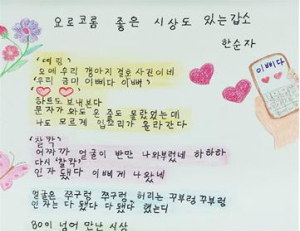 오르코롬 좋은 시상도 있는갑소
한순자
'띠링'
오메 우리 갱아지 결혼 사진이네
'우리 금미 이삐다 이뻐'
하트도 보내본다
문자가 와도 온 줄도 몰랐었는데
나도 모르게 입꼬리가 올라간다
'찰칵'
어짜까 얼굴이 반만 나와부렀네 하하하
다시 '찰칵'
인자 됐다 이쁘게 나왔네
얼굴은 쭈구렁 쭈구렁, 허리는 꾸부렁 꾸부렁
인자는 다 됐다 다 됐다 했는디
80이 넘어 만난 시상
이삐다